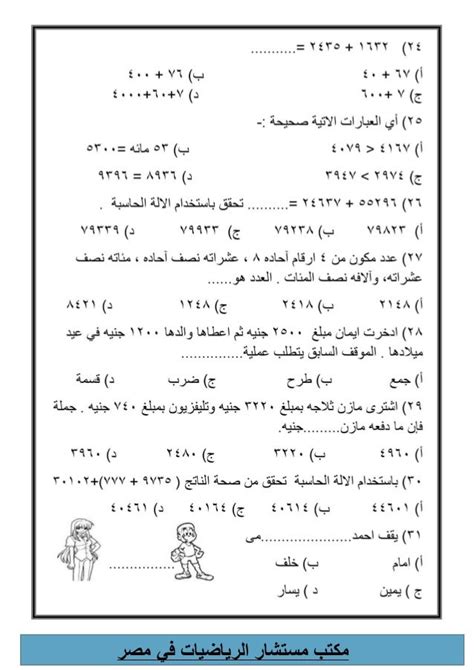 ٢٤) ١٦٣٢ + ٢٤٣٥ =...........
أ) ٦٧ + ٤٠ ب) ٧٦ + ٤٠٠
ج) ٧ + ٦٠٠ د) ٧+٦٠+٤٠٠٠
٢٥) أي العبارات الاتية صحيحة :-
أ) ٤١٦٧ < ٤٠٧٩ ب) ٥٣ مائه =٥٣٠٠
ج) ٢٩٧٤ > ٣٩٤٧ د) ٨٩٣٦ = ٩٣٩٦
٢٦) ٥٥٢٩٦ + ٢٤٦٣٧ =.......... تحقق باستخدام الالة الحاسبة .
أ) ٧٩٨٢٣ ب) ٧٩٢٣٨ ج) ٧٩٩٣٣ د) ٧٩٣٣٩
٢٧) عدد مكون من ٤ ارقام آحاده ٨ ، عشراته نصف آحاده ، مئاته نصف
عشراته، وآلافه نصف المئات . العدد هو......
أ) ٢١٤٨ ب) ٢٤١٨ ج) ١٢٤٨ د) ٨٤٢١
٢٨) ادخرت ايمان مبلغ ٢٥٠٠ جنيه ثم اعطاها والدها ١٢٠٠ جنيه في عيد
ميلادها . الموقف السابق يتطلب عملية...............
أ) جمع ب) طرح ج) ضرب د) قسمة
٢٩) اشترى مازن ثلاجه بمبلغ ٣٢٢٠ جنيه وتليفزيون بمبلغ ٧٤٠ جنيه . جملة
فإن ما دفعه مازن.........جنيه.
أ) ٤٩٦٠ ب) ٣٢٢٠ ج) ٢٤٨٠ د) ٣٩٦٠
٣٠) باستخدام الالة الحاسبة تحقق من صحة الناتج ( ٩٧٣٥ + ٧٧٧)+٣٠١٠٢
أ) ٤٤٦٠١ ب) ٤٠٦١٤ ج) ٤٠١٦٤ د) ٤٠٤٦١
٣١) يقف احمد......................مى
أ) امام ب) خلف
ج ) يمين د ) يسار
مكتب مستشار الرياضيات في مصر